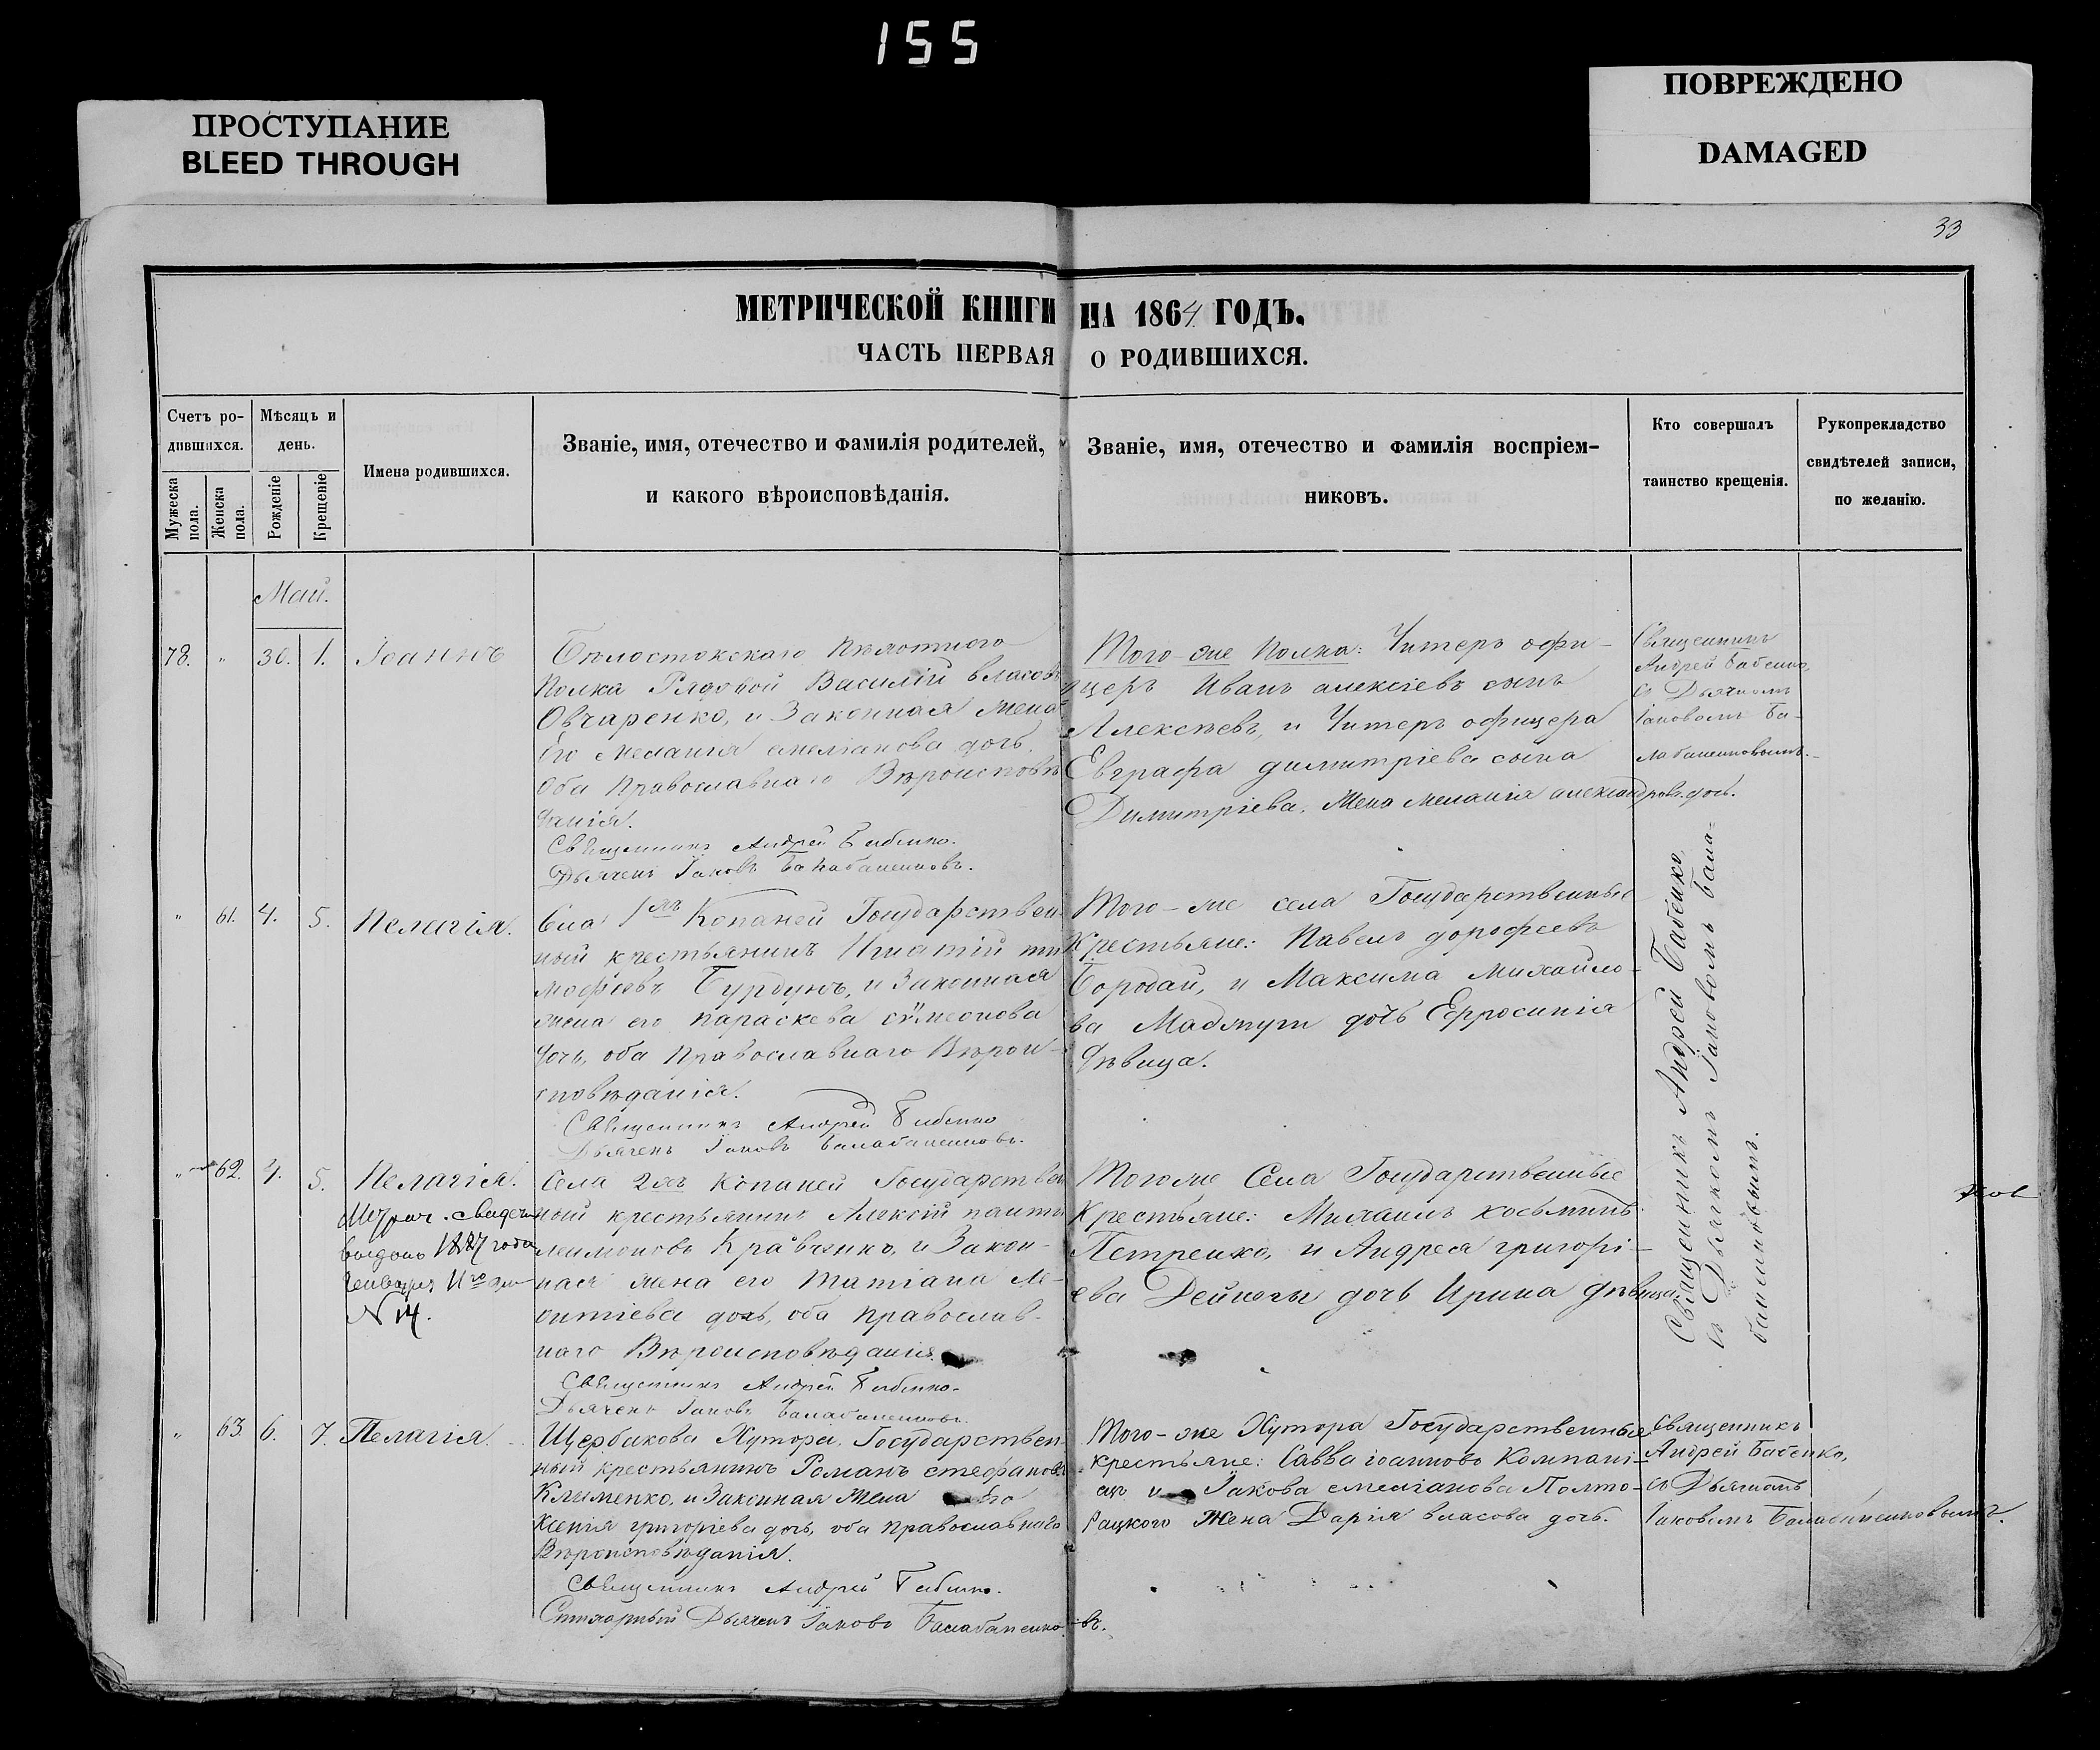 155
ПРОСТУПАНИЕ
BLEED THROUGH
ПОВРЕЖДЕНО
DAMAGED
33
МЕТРИЧЕСКОЙ КНИГИ НА 1864 ГОДЪ.
ЧАСТЬ ПЕРВАЯ О РОДИВШИХСЯ.
Счетъ ро-
дившихся.
Мужеска пола.
Женска пола.
Мѣсяцъ и
день.
Рожденіе
Крещеніе
Имена родившихся.
Званіе, имя, отечество и фамилія родителей,
и какого вѣроисповѣданія.
Званіе, имя, отечество и фамилія воспріем-
никовъ.
Кто совершалъ
таинство крещенія.
Рукоприкладство
свидѣтелей записи,
по желанію.
Май.
78. " 30. 1. Іоаннъ
Бѣлостокскаго Пѣхотнаго
Полка Рядовой Василій власовъ
Овчаренко, и Законная жена
Его мелания емеліанова дочь.
Оба Православнаго Вѣроисповѣ
данія.
Священникъ Андрей Бабенко.
Дьячекъ Іаковъ Балабаненковъ.
Того-же Полка: Унтеръ офи-
церъ Иванъ алексіевъ сынъ
Алексѣевъ, и Унтеръ офицера
Евграфа димитріева сына
Димитріева, Жена меланія александрова дочь.
Священникъ
Андрей Бабенко,
съ Дьячкомъ
Іаковомъ Ба-
лабаненковымъ.
" 61. 4. 5. Пелагія.
Села 1хъ Копаней Государствен-
ный крестьянинъ Игнатій ти
мофѣевъ Бурдунъ, и Законная
жена его параскева сѵмеонова
дочь, оба Православнаго Вѣрои-
сповѣданія.
Священникъ Андрей Бабенко
Дьячекъ Іаковъ Балабаненковъ.
Того-же села Государственные
Крестьяне: Павелъ дорофеевъ
Бородай, и Максима михайло-
ва дочь Ефросинія
дѣвица.
Священникъ Андрей Бабенко,
съ Дьячкомъ Іаковомъ Бала-
баненковымъ.
" 62. 4. 5. Пелагія.
Метрич. свидет.
выдано 1887 года
Генваря 11го дня
N 14.
Села 2хъ Копаней Государствен
ный крестьянинъ Алексій панте
леимоновъ Кравченко, и Закон-
ная жена его Татіана Ле-
онтіева дочь, оба православ-
наго Вѣроисповѣданія.
Священникъ Андрей Бабенко.
Дьячекъ Іаковъ Балабаненковъ.
Тогоже Села Государственные
Крестьяне: Михаилъ косьминъ
Петренко, и Андрея григорі-
ева Дейнеги дочь Ирина дѣвица.
" 63. 6. 7. Пелагія.
Щербакова Хутора, Государствен-
ный крестьянинъ Романъ стефановъ
Клименко, и Законная Жена Его
Ксенія григоріева дочь, оба православнаго
Вѣроисповѣданія.
Священникъ Андрей Бабенко.
Стихарный Дьячекъ Іаковъ Балабаненковъ.
Того-же Хутора Государственные
крестьяне: Савва іоанновъ Компані-
ецъ и Іакова емеліанова Полто-
рацкого Жена Дарія власова дочь.
Священникъ
Андрей Бабенко,
съ Дьячкомъ
Іаковомъ Балабаненковымъ.